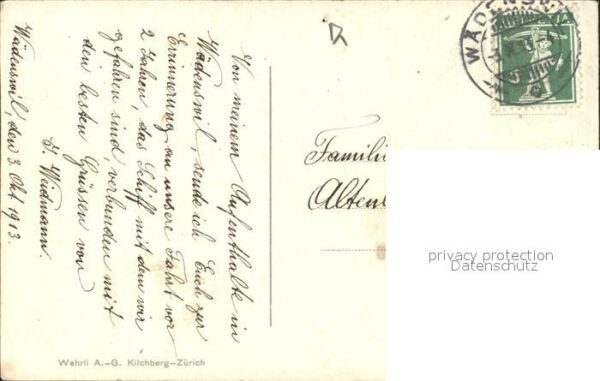 Von meinem Aufenthalte in
Wädenswil, sende ich Euch zur
Erinnerung an unsere Fahrt vor
2 Jahren, das Schiff mit dem wir
gefahren sind, verbunden mit
den besten Grüssen von
E. Weidmann.
Wädenswil, den 3. Okt. 1913.
WÄDENSW
Famili
Alten
privacy protection
Datenschutz
Wehrli A.-G. Kilchberg-Zürich